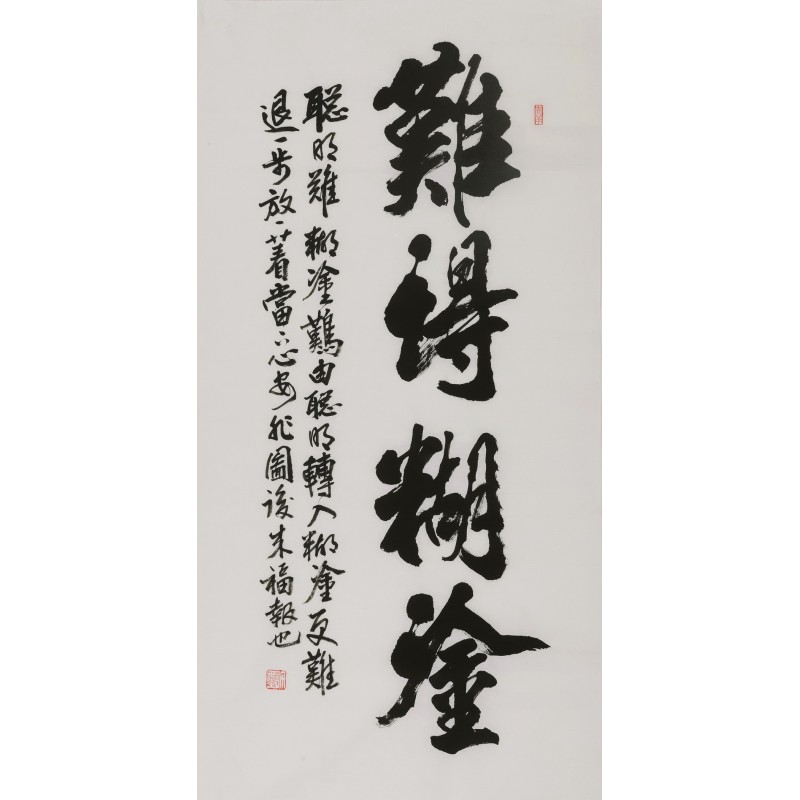 難得糊塗
聪明難糊塗難由聪明轉入糊塗更難
退一步放一着當下心安非圖後来福報也